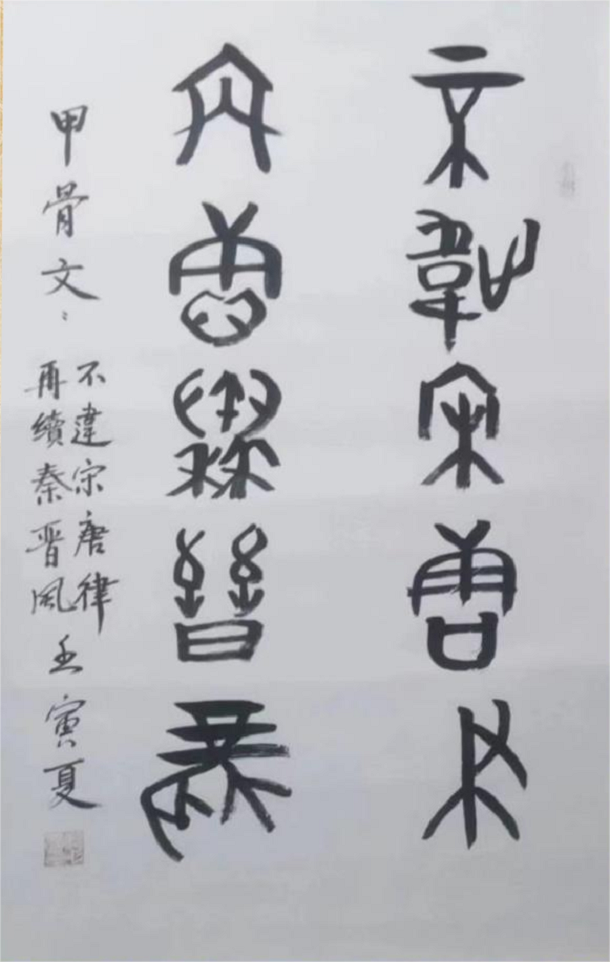 不韋宋唐律
再續秦晉風
甲骨文：
不違宋唐律
再續秦晉風
壬寅夏